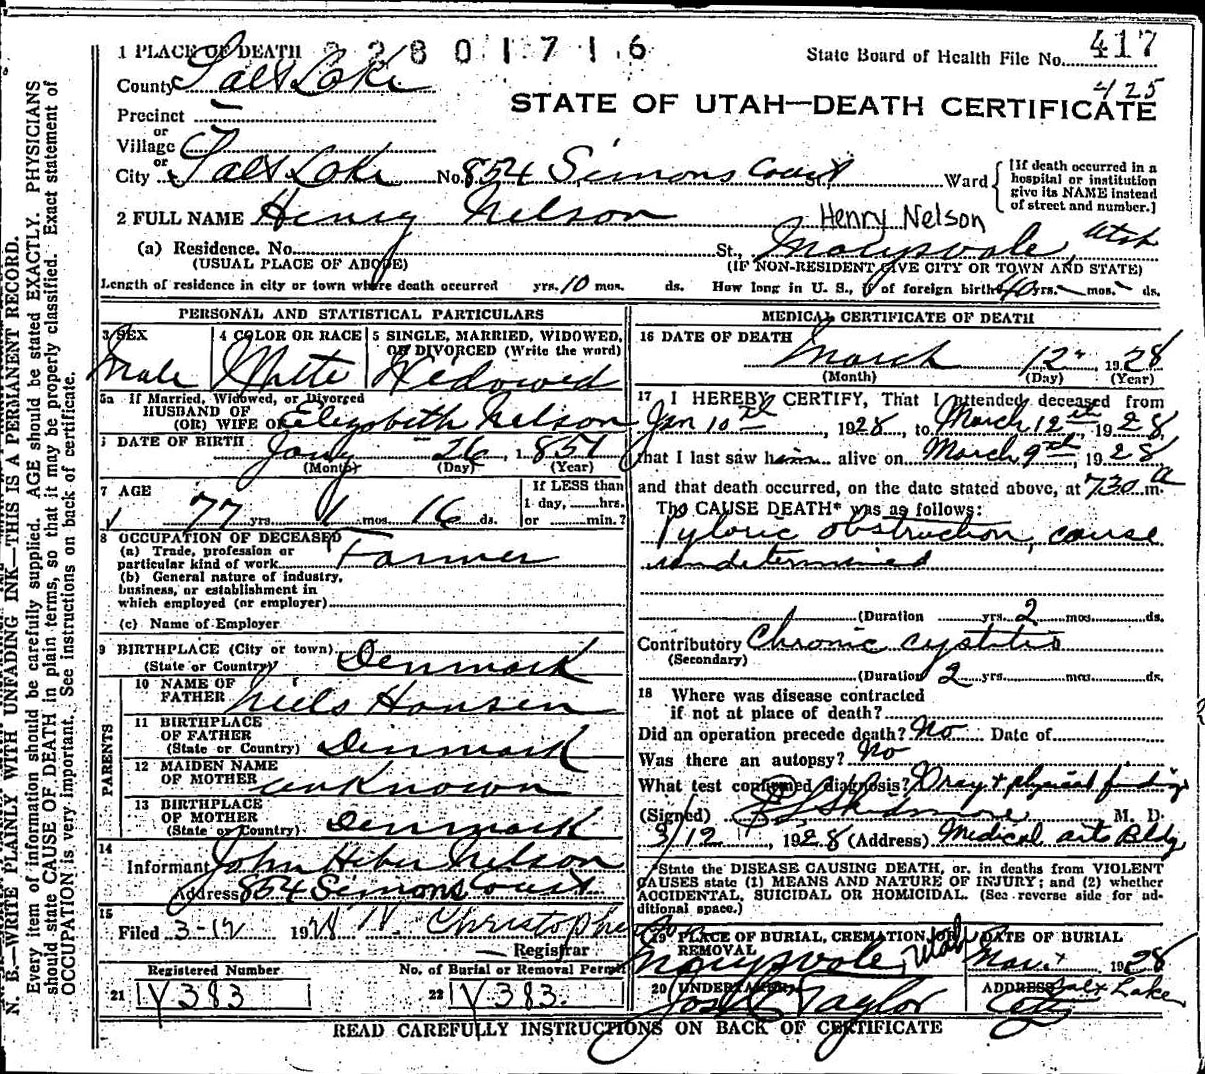 1 PLACE OF DEATH 2801716
State Board of Health File No. 417
425
County Salt Lake
STATE OF UTAH—DEATH CERTIFICATE
Precinct
or
Village
or
City Salt Lake No. 854 Simons Court St., Ward
[If death occurred in a
hospital or institution
give its NAME instead
of street and number.]
2 FULL NAME Henry Nelson Henry Nelson
(a) Residence. No. St., Marysvale, Utah
(USUAL PLACE OF ABODE) (IF NON-RESIDENT GIVE CITY OR TOWN AND STATE)
Length of residence in city or town where death occurred yrs. 10 mos. ds. How long in U. S., if of foreign birth? 40 yrs. - mos. - ds.
PERSONAL AND STATISTICAL PARTICULARS
3 SEX
Male
4 COLOR OR RACE
White
5 SINGLE, MARRIED, WIDOWED,
OR DIVORCED (Write the word)
Widowed
5a If Married, Widowed, or Divorced
HUSBAND OF
(OR) WIFE OF Elizabeth Nelson
6 DATE OF BIRTH Jany 26, 1851
(Month) (Day) (Year)
7 AGE
77 yrs. 1 mos. 16 ds.
If LESS than
1 day, hrs.
or min.?
8 OCCUPATION OF DECEASED
(a) Trade, profession or
particular kind of work Farmer
(b) General nature of industry,
business, or establishment in
which employed (or employer)
(c) Name of Employer
9 BIRTHPLACE (City or town)
(State or Country) Denmark
PARENTS
10 NAME OF
FATHER Niels Hansen
11 BIRTHPLACE
OF FATHER
(State or Country) Denmark
12 MAIDEN NAME
OF MOTHER unknown
13 BIRTHPLACE
OF MOTHER
(State or Country) Denmark
14
Informant John Heber Nelson
Address 854 Simons Court
15
Filed 3-12 1928 Christophe
Registrar
Registered Number No. of Burial or Removal Permit
21 Y383 22 Y383
MEDICAL CERTIFICATE OF DEATH
16 DATE OF DEATH
March 12, 1928
(Month) (Day) (Year)
17 I HEREBY CERTIFY, That I attended deceased from
Jan 10th, 1928, to March 12th, 1928,
that I last saw him alive on March 9th, 1928
and that death occurred, on the date stated above, at 730 a m.
The CAUSE DEATH* was as follows:
Pyloric obstruction, cause
undetermined
(Duration yrs. 2 mos. ds.
Contributory Chronic cystitis
(Secondary)
(Duration 2 yrs. mos. ds.
18 Where was disease contracted
if not at place of death?
Did an operation precede death? No Date of
Was there an autopsy? No
What test confirmed diagnosis? Xray + physical findings
(Signed) Skidmore M. D.
3/12, 1928 (Address) Medical Arts Bldg
*State the DISEASE CAUSING DEATH, or, in deaths from VIOLENT
CAUSES state (1) MEANS AND NATURE OF INJURY; and (2) whether
ACCIDENTAL, SUICIDAL OR HOMICIDAL. (See reverse side for ad-
ditional space.)
19 PLACE OF BURIAL, CREMATION, OR
REMOVAL
Marysvale, Utah
DATE OF BURIAL
Mar. 1928
20 UNDERTAKER
Jos. Taylor
ADDRESS Salt Lake
City
READ CAREFULLY INSTRUCTIONS ON BACK OF CERTIFICATE
N. B.—WRITE PLAINLY WITH UNFADING INK—THIS IS A PERMANENT RECORD.
Every item of information should be carefully supplied. AGE should be stated EXACTLY. PHYSICIANS
should state CAUSE OF DEATH in plain terms, so that it may be properly classified. Exact statement of
OCCUPATION is very important. See instructions on back of certificate.